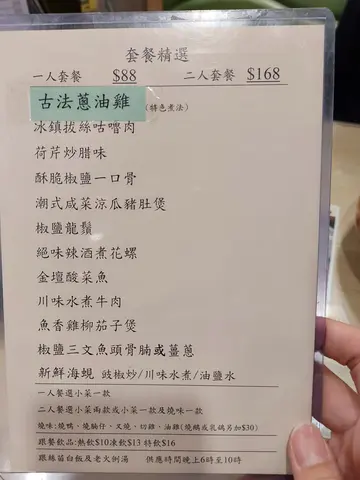 套餐精選
一人套餐 $88 二人套餐 $168
古法蔥油雞 (特色煮法)
冰鎮拔絲咕嚕肉
荷芹炒腊味
酥脆椒鹽一口骨
潮式咸菜涼瓜豬肚煲
椒鹽龍鬚
絕味辣酒煮花螺
金壇酸菜魚
川味水煮牛肉
魚香雞柳茄子煲
椒鹽三文魚頭骨腩或薑蔥
新鮮海蜆 豉椒炒/川味水煮/油鹽水
一人餐選小菜一款
二人餐選小菜兩款或小菜一款及燒味一款
燒味:燒鴨、燒腩仔、叉燒、切雞、油雞(燒鵝或乳鴿另加$30)
跟餐飲品:熱飲$10凍飲$13 特飲$16
跟絲苗白飯及老火例湯 供應時間晚上6時至10時